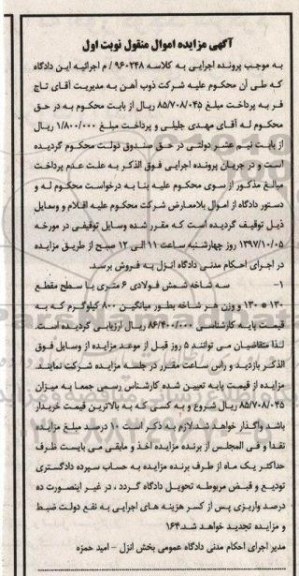 آگهی مزایده اموال منقول نوبت اول
به موجب پرونده اجرایی به کلاسه ۹۶۰۲۴۸ / م اجرائیه این دادگاه
که طی آن محکوم علیه شرکت ذوب آهن به مدیریت آقای تاج
فر به پرداخت مبلغ ۸۵/۷۰۸/۰۴۵ ریال از بابت محکوم به در حق
محکوم له آقای مهدی جلیلی و پرداخت مبلغ ۱/۸۰۰/۰۰۰ ریال
از بابت نیم عشر دولتی در حق صندوق دولت محکوم گردیده
است و در جریان پرونده اجرایی فوق الذکر به علت عدم پرداخت
مبالغ مذکور از سوی محکوم علیه بنا به درخواست محکوم له و
دستور دادگاه از اموال بلامعارض شرکت محکوم علیه اقلام و وسایل
ذیل توقیف گردیده است که مقرر شده وسایل توقیفی در مورخه
۱۳۹۷/۱۰/۰۵ روز چهارشنبه ساعت ۱۱ الی ۱۲ صبح از طریق مزایده
در اجرای احکام مدنی دادگاه انزل به فروش برسد.
۱- سه شاخه شمش فولادی ۶ متری با سطح مقطع
۱۳۰ * ۱۳۰ و وزن هر شاخه بطور میانگین ۸۰۰ کیلوگرم که به
قیمت پایه کارشناسی ۸۶/۴۰۰/۰۰۰ ریال ارزیابی گردیده است.
لذا متقاضیان می توانند ۵ روز قبل از موعد مزایده از وسایل فوق
الذکر بازدید و راس ساعت مقرر در جلسه مزایده شرکت نمایند
مزایده از قیمت پایه تعیین شده کارشناس رسمی جمعا به میزان
۸۵/۷۰۸/۰۴۵ ریال شروع و به کسی که به بالاترین قیمت خریدار
باشد واگذار خواهد شد.لازم به ذکر است ۱۰ درصد مبلغ مزایده
نقدا و فی المجلس از برنده مزایده اخذ و مابقی می بایست ظرف
حداکثر یک ماه از طرف برنده مزایده به حساب سپرده دادگستری
تودیع و قبض مربوطه تحویل دادگاه گردد ، در غیر اینصورت ده
درصد واریزی پس از کسر هزینه های اجرایی به نفع دولت ضبط
و مزایده تجدید خواهد شد.۱۶۴
مدیر اجرای احکام مدنی دادگاه عمومی بخش انزل - امید حمزه